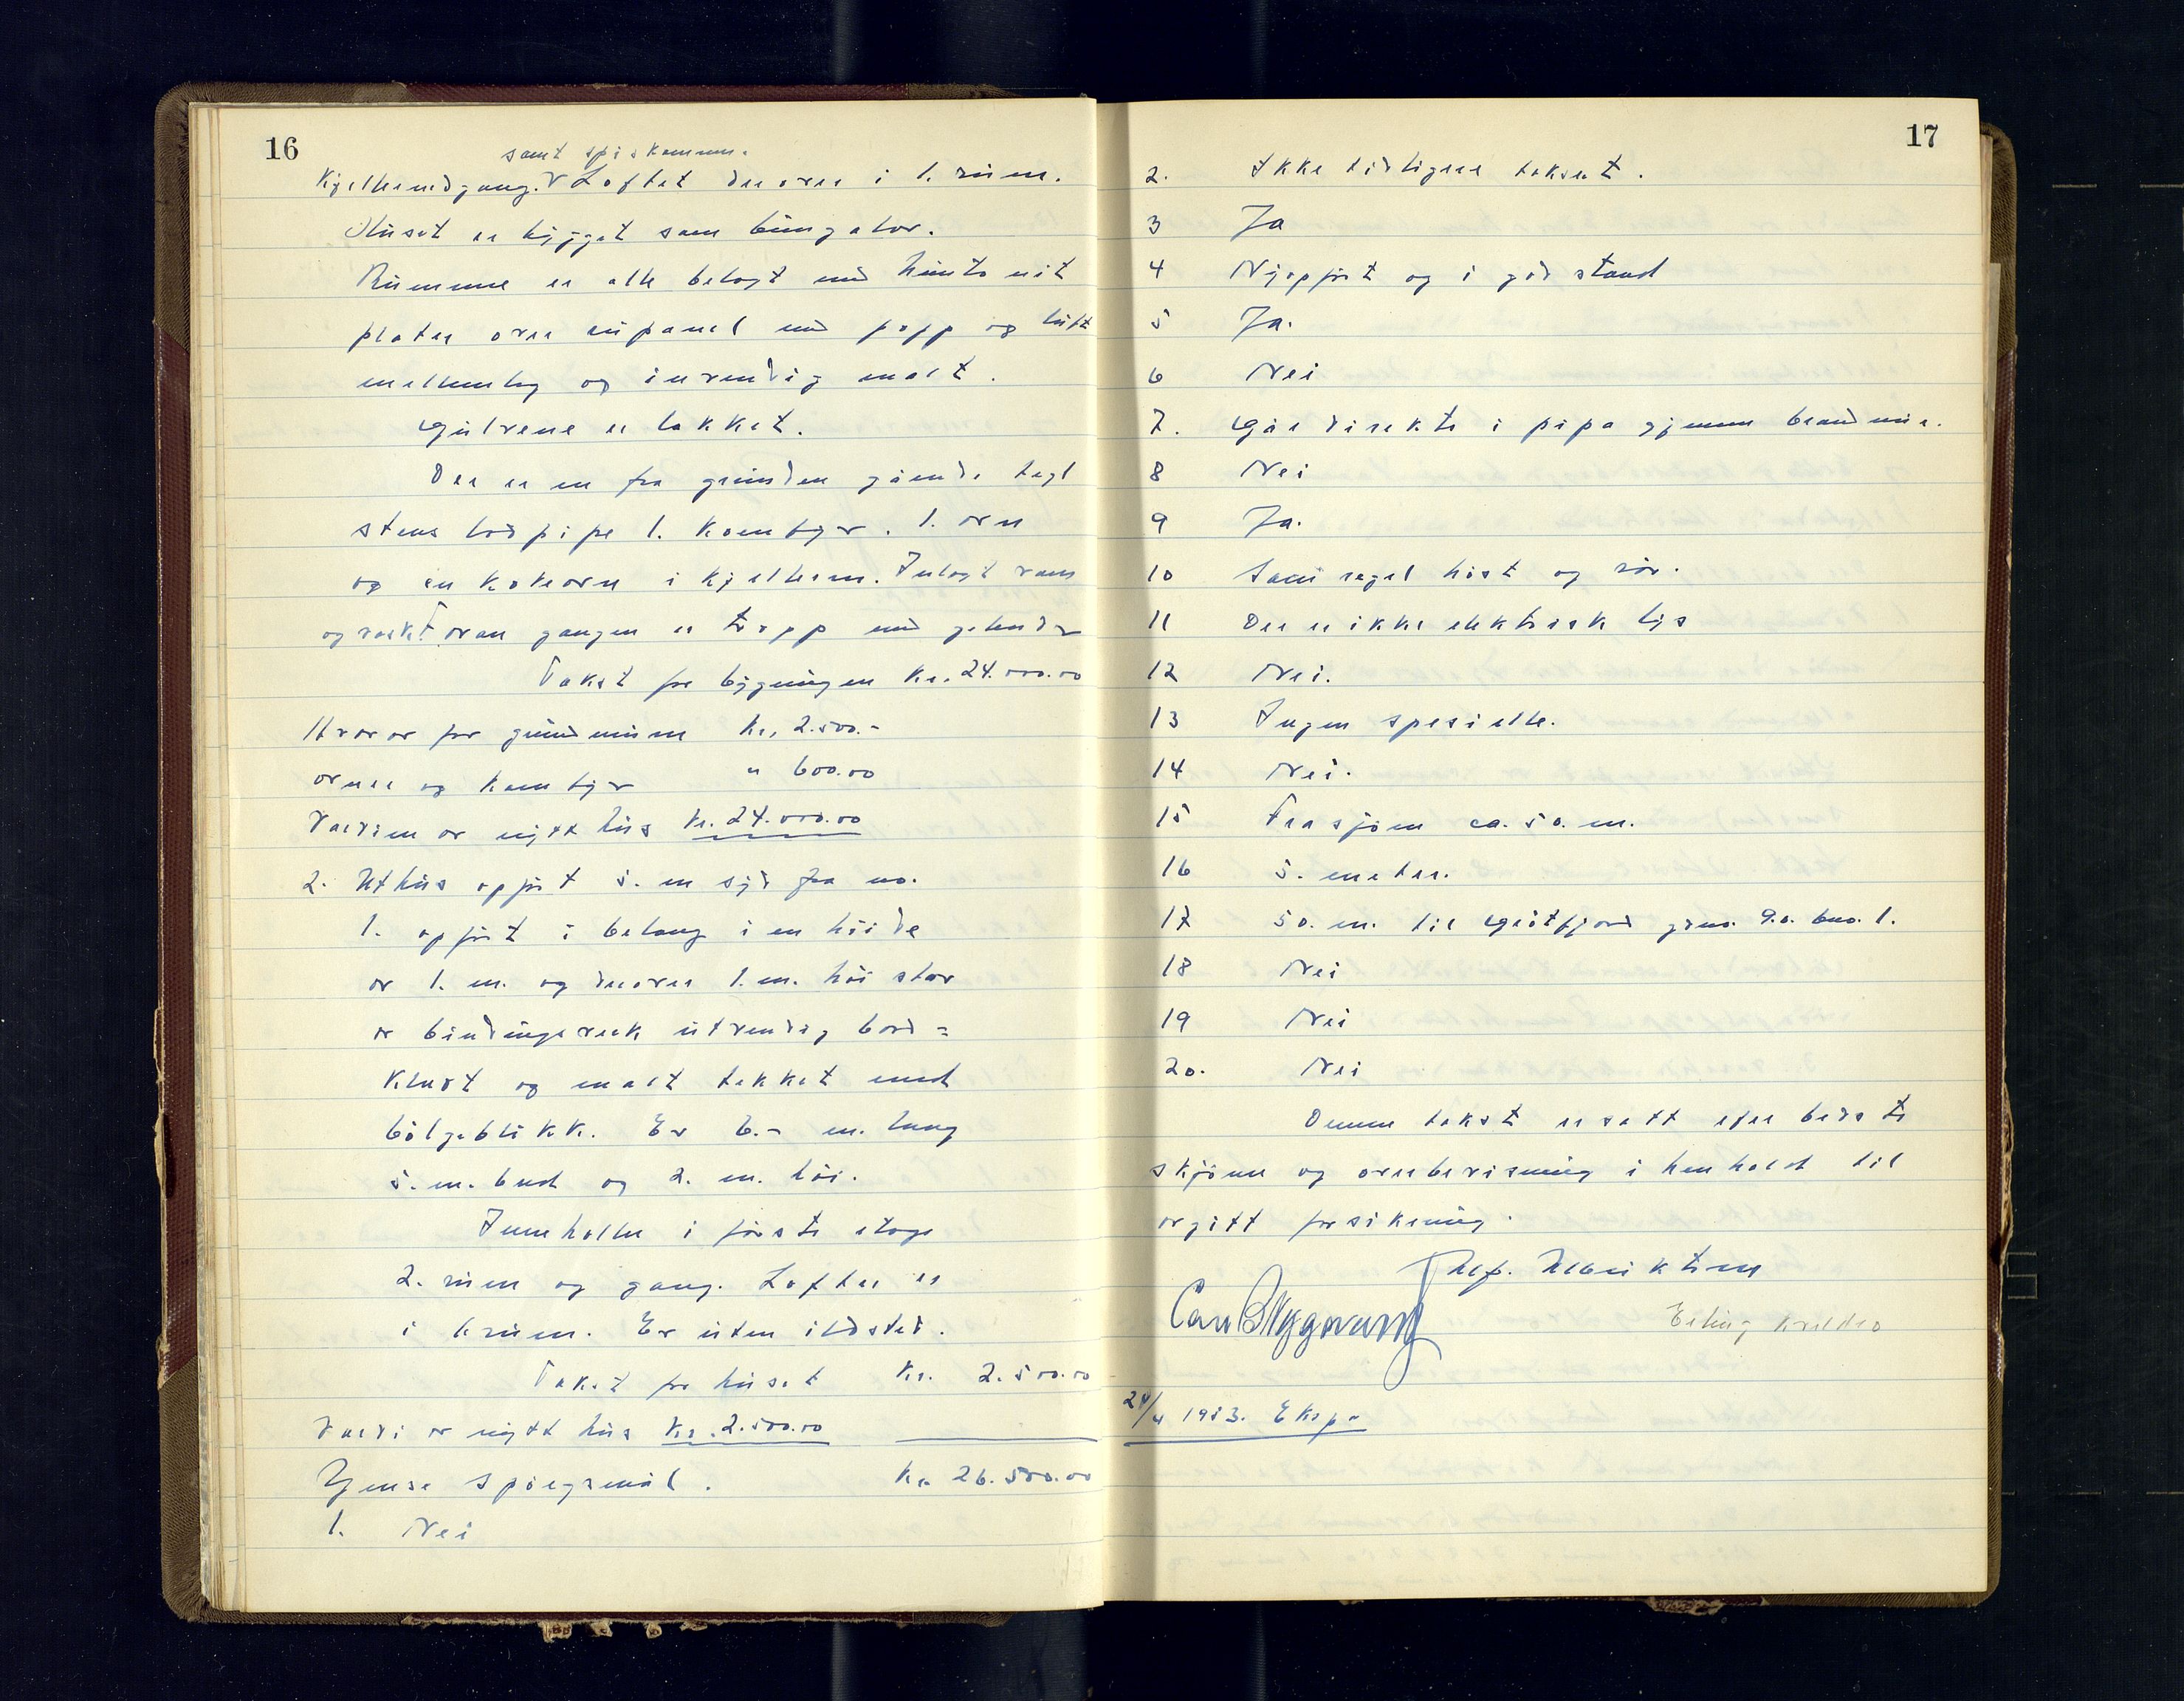 16
samt spiskammer.
Kjellernedgang. V Loftet derover i 1. rum.
Huset er bygget som bungalov.
Rummene er alle belagt med huntonit
plater over rupanel med papp og luft
mellemlag og invendig malt.
Gulvene er lakket.
Der er en fra grunden gående tegl
stens lodpipe 1. komfyr. 1. ovn
og en koksovn i kjelleren. Inlagt vann
og vask. Foran gangen er trapp med gelender
Takst for bygningen Kr. 24.000.00
Hvorav for grundmuren kr. 2.500.-
ovner og komfyr " 600.00
Verdien av nytt hus Kr. 24.000.00
2. Uthus opført 5. m syd fra no.
1. opført i betong i en höide
av 1. m. og derover 1. m. höi stav
av bindingsverk utvendig bord=
kledt og malt tekket med
bölgeblikk. Er 6.- m. lang
5. m. bred og 2. m. höi.
Inneholder i förste etage
2. rum og gang. Loftet er
i 1. rum. Er uten ildsted.
Takst for huset Kr. 2.500.00
Verdi av nytt hus Kr. 2.500.00
Kr. 26.500.00
Gense spörgsmål.
1. Nei
17
2. Ikke tidligere taksert.
3 Ja
4 Nyopfört og i god stand
5 Ja.
6 Nei
7. Går direkte i pipa gjennem brandmur.
8 Nei
9 Ja.
10 Som regel höst og vår.
11 Der er ikke elektrisk lys
12 Nei.
13 Ingen spesielle.
14 Nei.
15 Fra sjöen ca. 50. m.
16 5. meter.
17 50. m. til Grötfjord gno. 90. bno. 1.
18 Nei
19 Nei
20. Nei
Denne takst er satt efter beds te
skjönn og overbevisning i henhold til
avgitt forsikring.
Alf. Albriktsen
Erling
24/4 1953. Eksp.